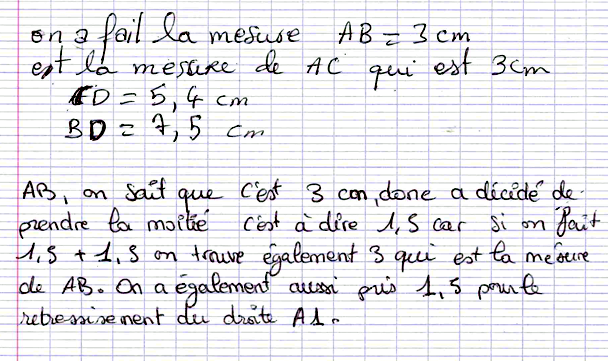 on a fait la mesure AB = 3 cm
est la mesure de AC qui est 3cm
CD = 5,4 cm
BD = 7,5 cm
AB, on sait que c'est 3 cm, donc a décidé de
prendre la moitié c'est à dire 1,5 car si on fait
1,5 + 1,5 on trouve également 3 qui est la mesure
de AB. On a également aussi pris 1,5 pour le
retressisement du droite A1.